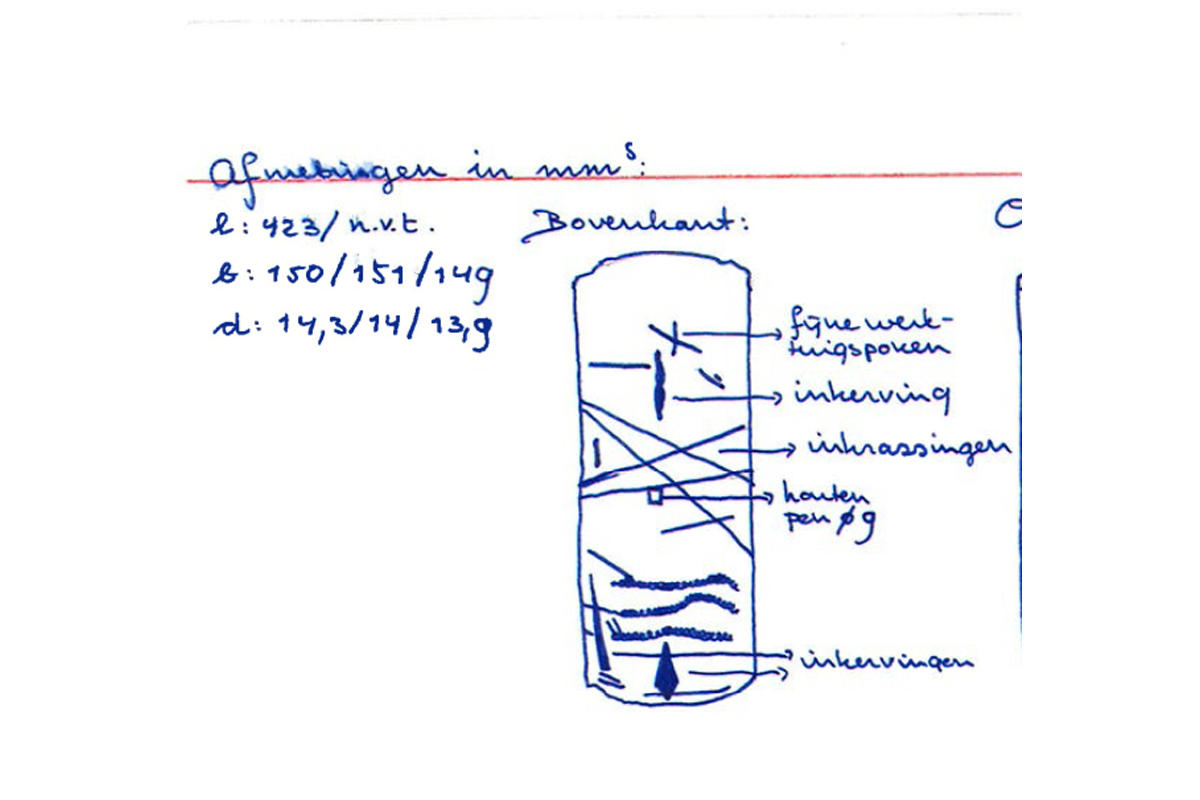 Afmetingen in mm^s:
l: 423/ n.v.t.
b: 150/151/149
d: 14,3/14/13,9
Bovenkant:
fijne werk-
tuigsporen
inkerving
inkrassingen
houten
pen ø 9
inkervingen